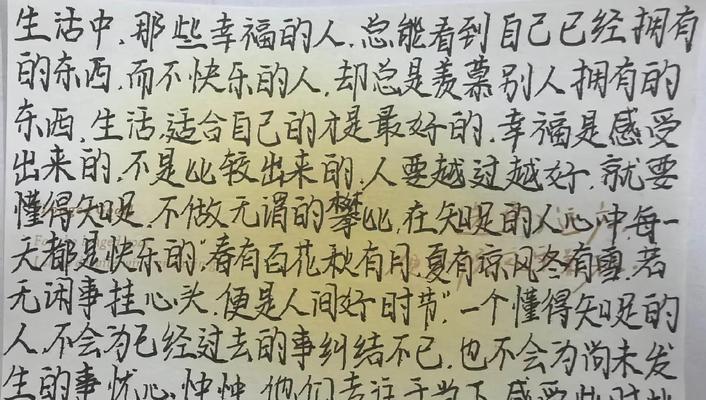 生活中,那些幸福的人,总能看到自己已经拥有
的东西,而不快乐的人,却总是羡慕别人拥有的
东西,生活,适合自己的才是最好的,幸福是感受
出来的,不是比较出来的,人要越过越好,就要
懂得知足,不做无谓的攀比,在知足的人心中,每一
天都是快乐的,"春有百花秋有月,夏有凉风冬有雪,若
无闲事挂心头,便是人间好时节",一个懂得知足的
人,不会为已经过去的事纠结不已,也不会为尚未发
生的事忧心忡忡,他们专注于当下,感受此时